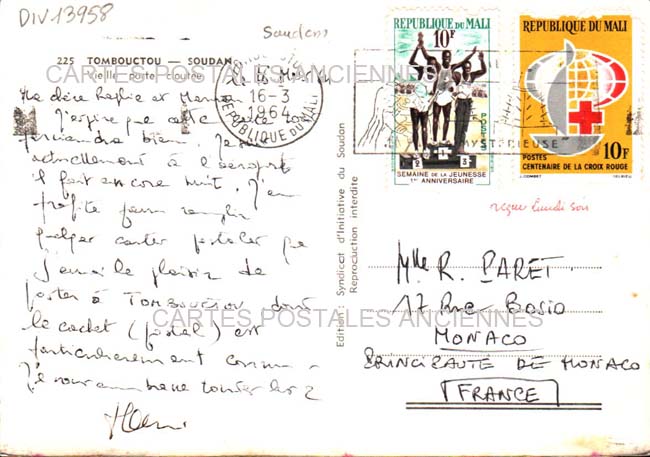 DIV 13958
Soudan
225 TOMBOUCTOU — SOUDAN
Vieille porte cloutée
CARTES POSTALES ANCIENNES
16-3
1964
REPUBLIQUE DU MALI
REPUBLIQUE DU MALI
10F
POSTES
2 1 3
SEMAINE DE LA JEUNESSE
1er ANNIVERSAIRE
REPUBLIQUE DU MALI
10F
POSTES
CENTENAIRE DE LA CROIX ROUGE
J. COMBET
MYSTERIEUSE
Ma chère et
J'espère que cette
bien. Je
actuellement à l'aéroport
il fait encore nuit. J'en
profite pour remplir
quelques cartes postales que
j'aurai le plaisir de
poster à TOMBOUCTOU dont
le cachet (postal) est
particulièrement connu.
Je vous embrasse toutes les 2
Edition : Syndicat d'Initiative du Soudan
Reproduction interdite
reçue lundi soir
Mlle R. PARET
17 Rue Bosio
MONACO
CARTES POSTALES ANCIENNES
PRINCIPAUTE DE MONACO
FRANCE